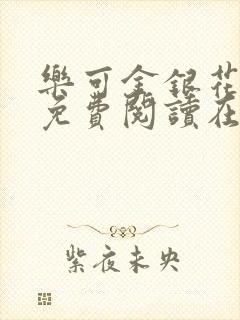 樂可金銀花
免費閱讀在
紫夜未央